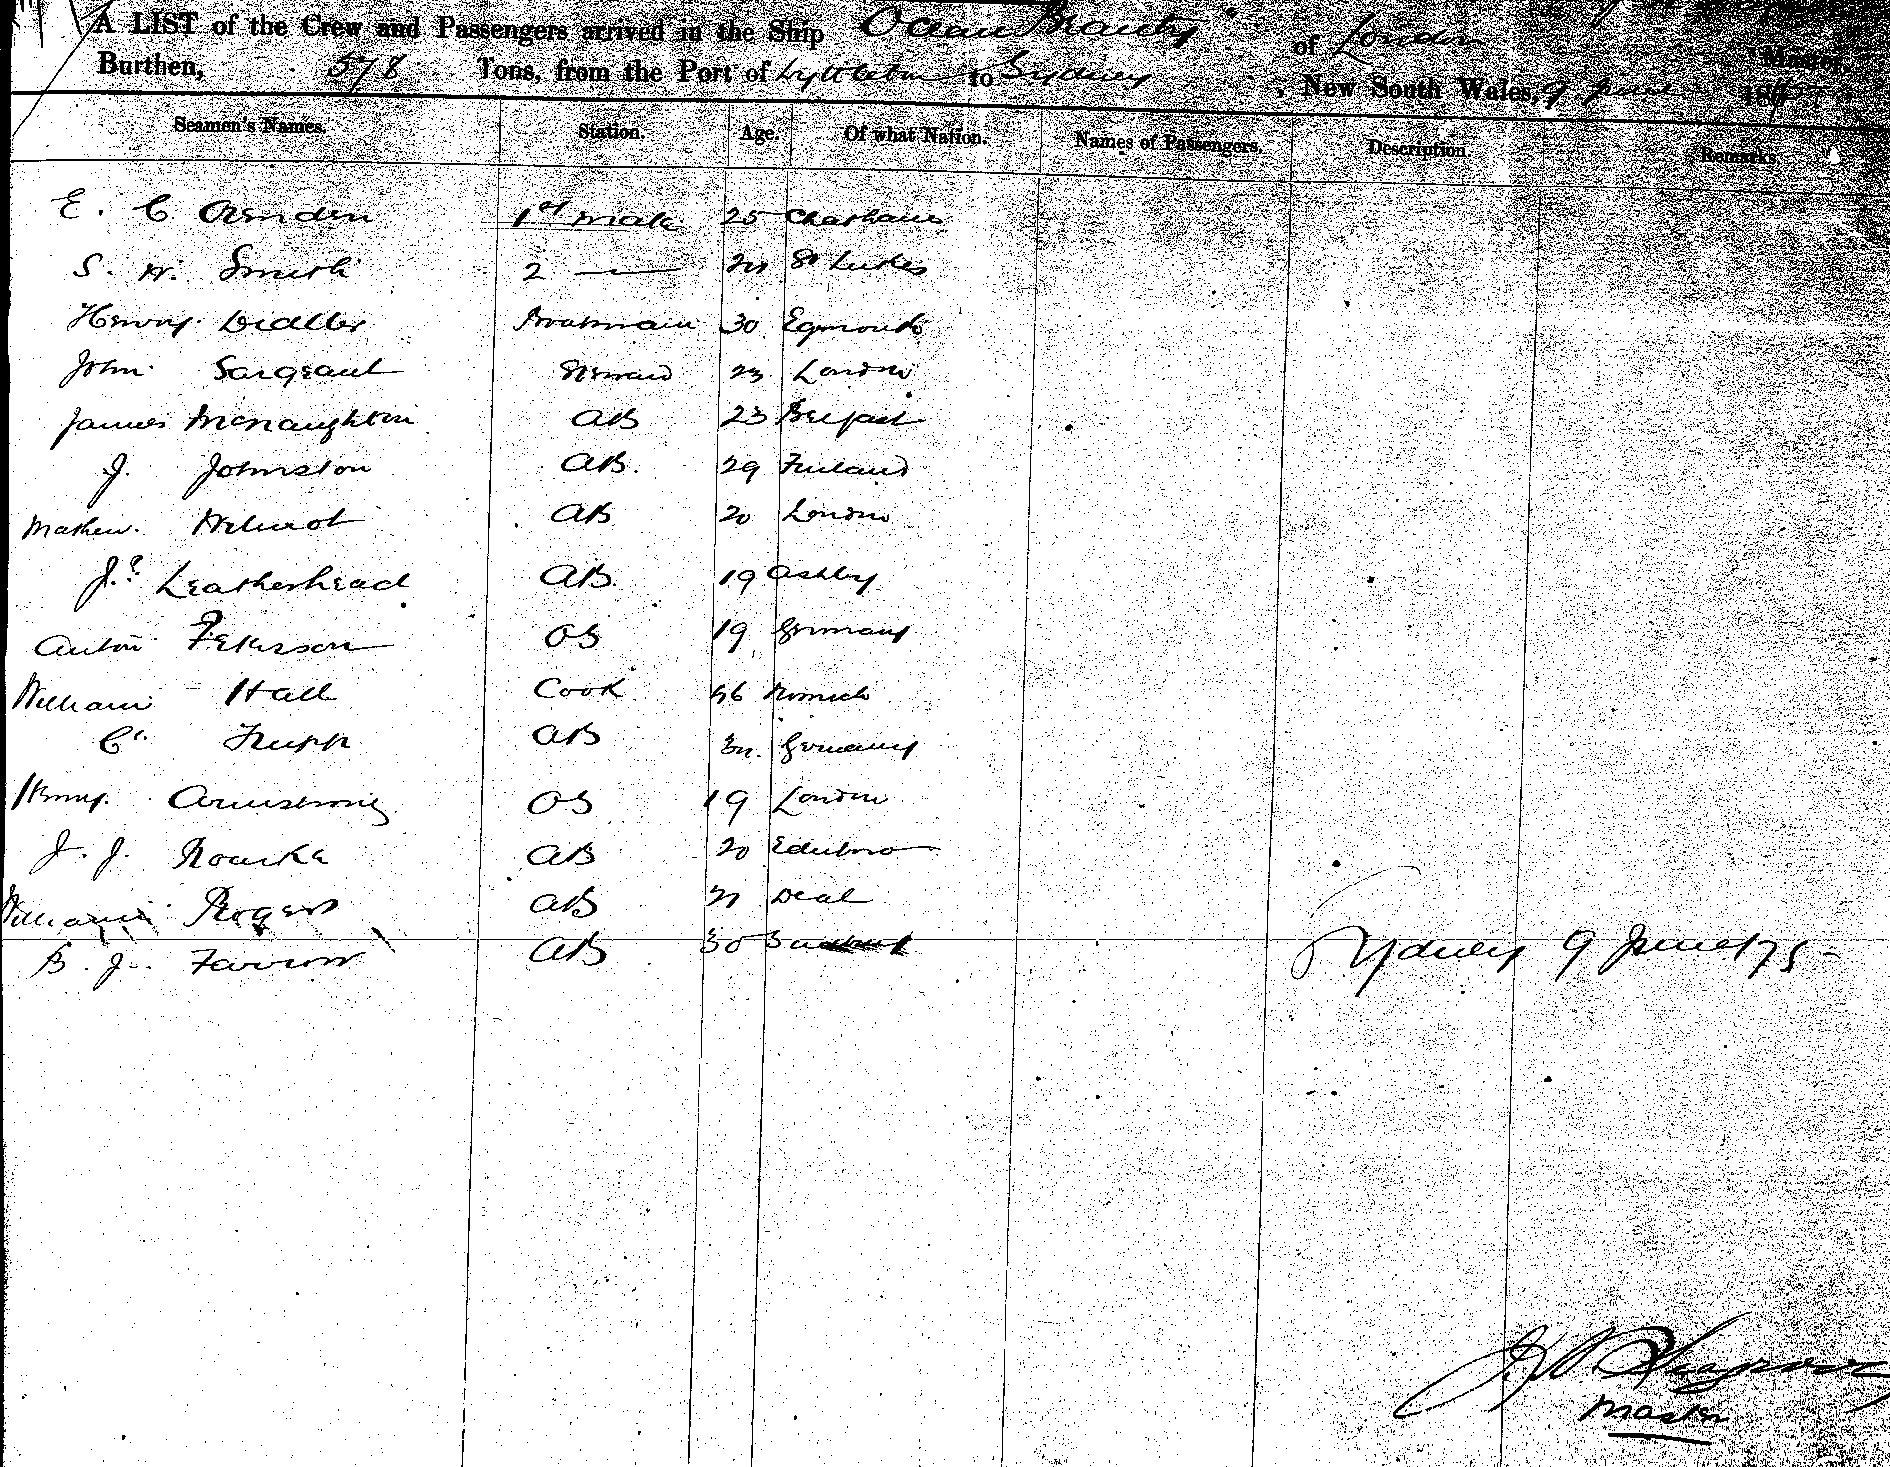 A LIST of the Crew and Passengers arrived in the Ship "Ocean Beauty" of London
Master,
Burthen, 578 Tons, from the Port of Lyttleton to Sydney, New South Wales, 9 June 187
Seamen's Names. Station. Age. Of what Nation. Names of Passengers. Description. Remarks
E. C 1st Mate 25
S. W. Smith 2 — St Lukes
Henry Boatswain 30 Egmont
John Sargeant Steward 23 London
James McNaughton AB 23 Belfast
J. Johnston AB. 29 Finland
Mathew. AB 20 London
Jas Leatherhead AB. 19 Ashby
Anton Peterson OS 19 Germany
William Hall Cook 46
C. AB Germany
Henry. Armstrong OS 19 London
J. J. Rourke AB 20 Edinbro
William Rogers AB 21 Deal
B. J. Farrow AB 30
Sydney 9 June 1/75-
Master